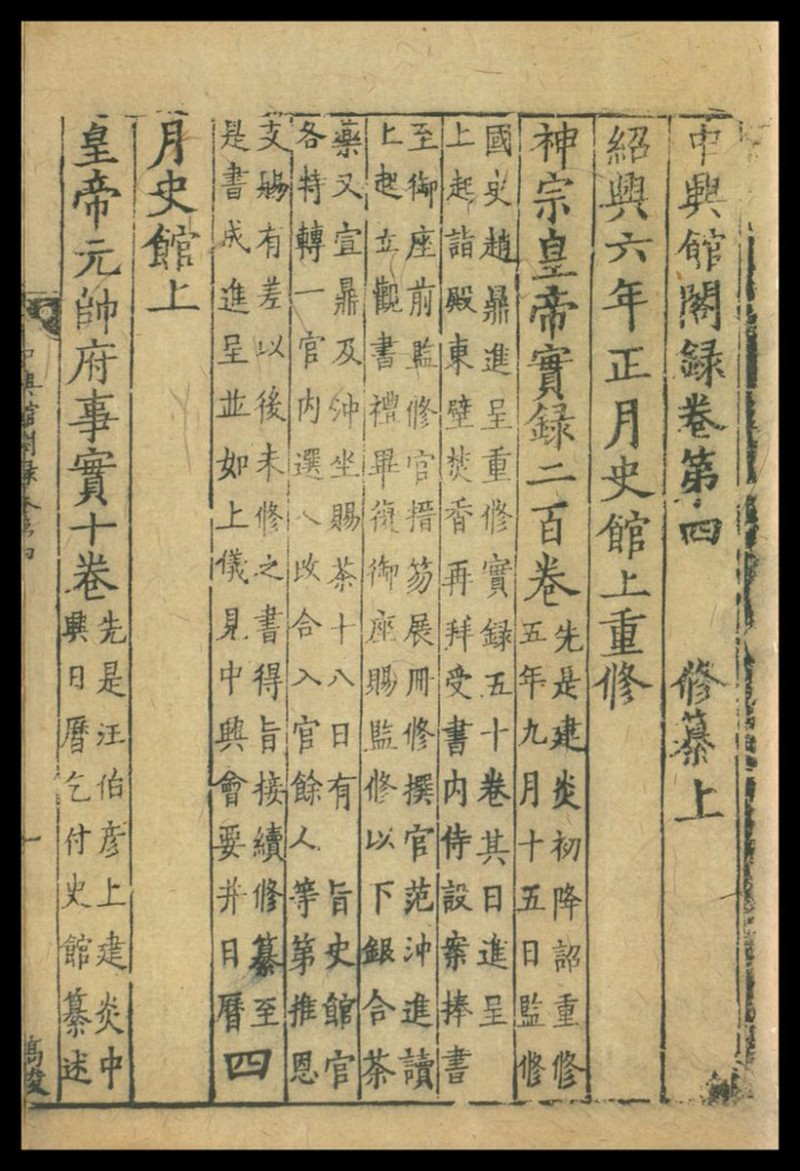 中興館閣録卷第四　修纂上
紹興六年正月史館上重修
神宗皇帝實録二百卷
先是建炎初降詔重修
五年九月十五日監修
國史趙鼎進呈重修實録五十卷其日進呈
上起詣殿東壁焚香再拜受書内侍設案捧書
至御座前監修官搢笏展冊修撰官范沖進讀
上起立觀書禮畢復御座賜監修以下銀合茶
藥又宣鼎及沖坐賜茶十八日有　旨史館官
各特轉一官内選人改合入官餘人等第推恩
支賜有差以後未修之書得旨接續修纂至
是書成進呈並如上儀見中興會要并日曆
四
月史館上
皇帝元帥府事實十卷
先是汪伯彦上建炎中
興日曆乞付史館纂述
中興館閣録卷第四
一